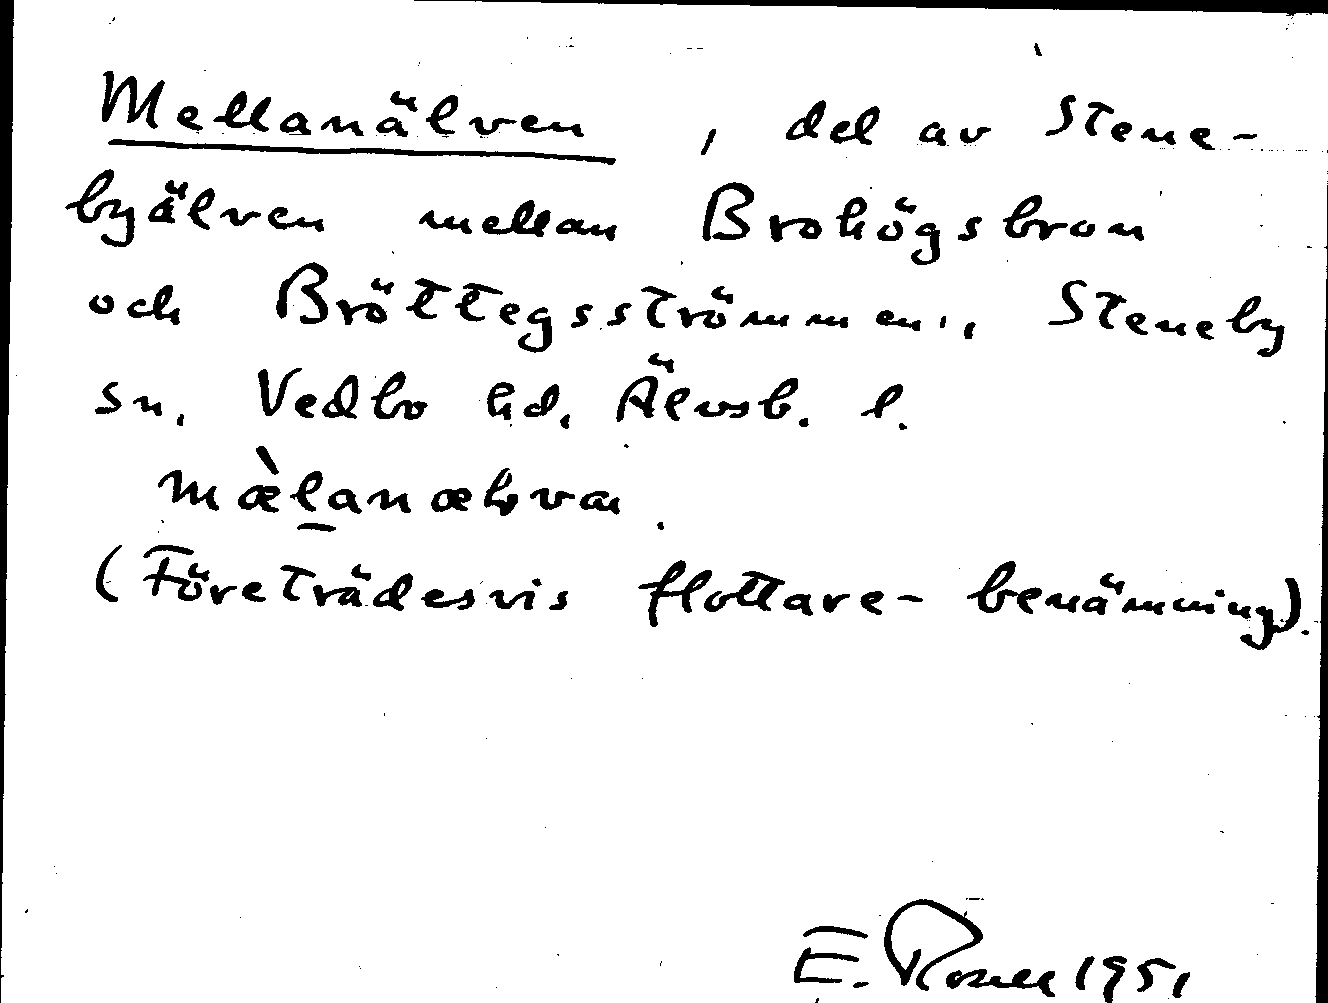 Mellanälven, del av Stene-
byälven mellan Brohögsbron
och Bröttegsströmmen., Steneby
sn. Vedbo hd. Älvsb. l.
(Företrädesvis flottare-benämning).
E. Rosell 1951